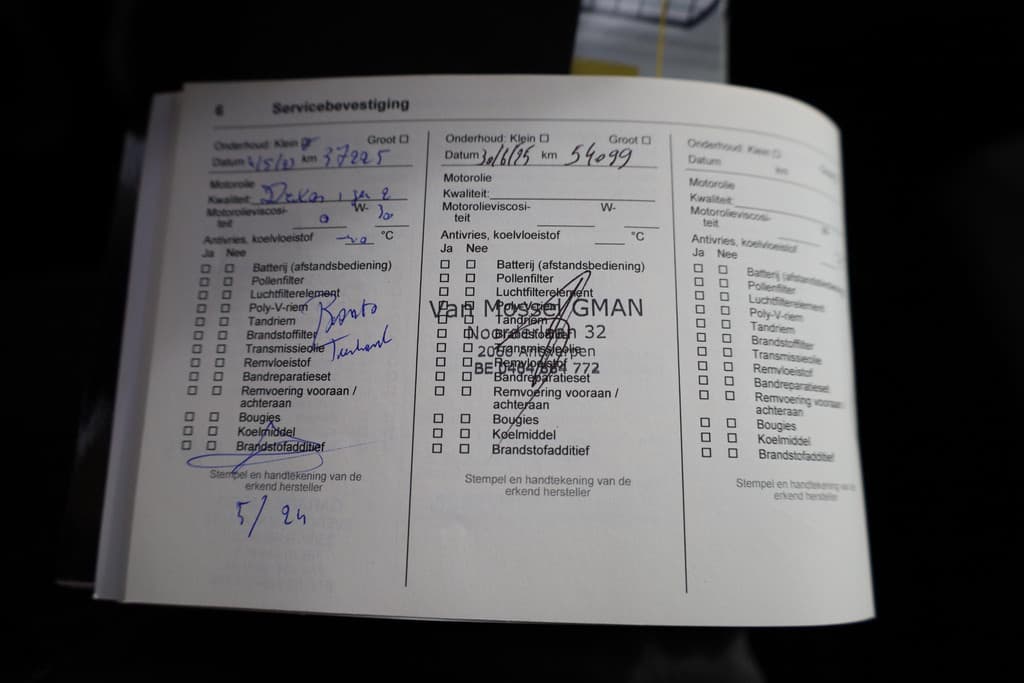 6 Servicebevestiging
Onderhoud: Klein Groot
Datum km 37225
Motorolie
Kwaliteit:
Motorolieviscosi- W-
teit
Antivries, koelvloeistof °C
Ja Nee
Batterij (afstandsbediening)
Pollenfilter
Luchtfilterelement
Poly-V-riem
Tandriem
Brandstoffilter
Transmissieolie
Remvloeistof
Bandreparatieset
Remvoering vooraan /
achteraan
Bougies
Koelmiddel
Brandstofadditief
Stempel en handtekening van de
erkend hersteller
5/24
Onderhoud: Klein Groot
Datum 30/6/25 km 54099
Motorolie
Kwaliteit:
Motorolieviscosi- W-
teit
Antivries, koelvloeistof °C
Ja Nee
Batterij (afstandsbediening)
Pollenfilter
Luchtfilterelement
Poly-V-riem
Tandriem
Brandstoffilter
Transmissieolie
Remvloeistof
Bandreparatieset
Remvoering vooraan /
achteraan
Bougies
Koelmiddel
Brandstofadditief
Van Mossel GMAN
32
2060 Antwerpen
772
Stempel en handtekening van de
erkend hersteller
Onderhoud: Klein
Datum km
Motorolie
Kwaliteit:
Motorolieviscosi-
teit
Antivries, koelvloeistof
Ja Nee
Batterij (afstandsbediening)
Pollenfilter
Luchtfilterelement
Poly-V-riem
Tandriem
Brandstoffilter
Transmissieolie
Remvloeistof
Bandreparatieset
Remvoering vooraan
achteraan
Bougies
Koelmiddel
Brandstofadditief
Stempel en handtekening van
erkend hersteller